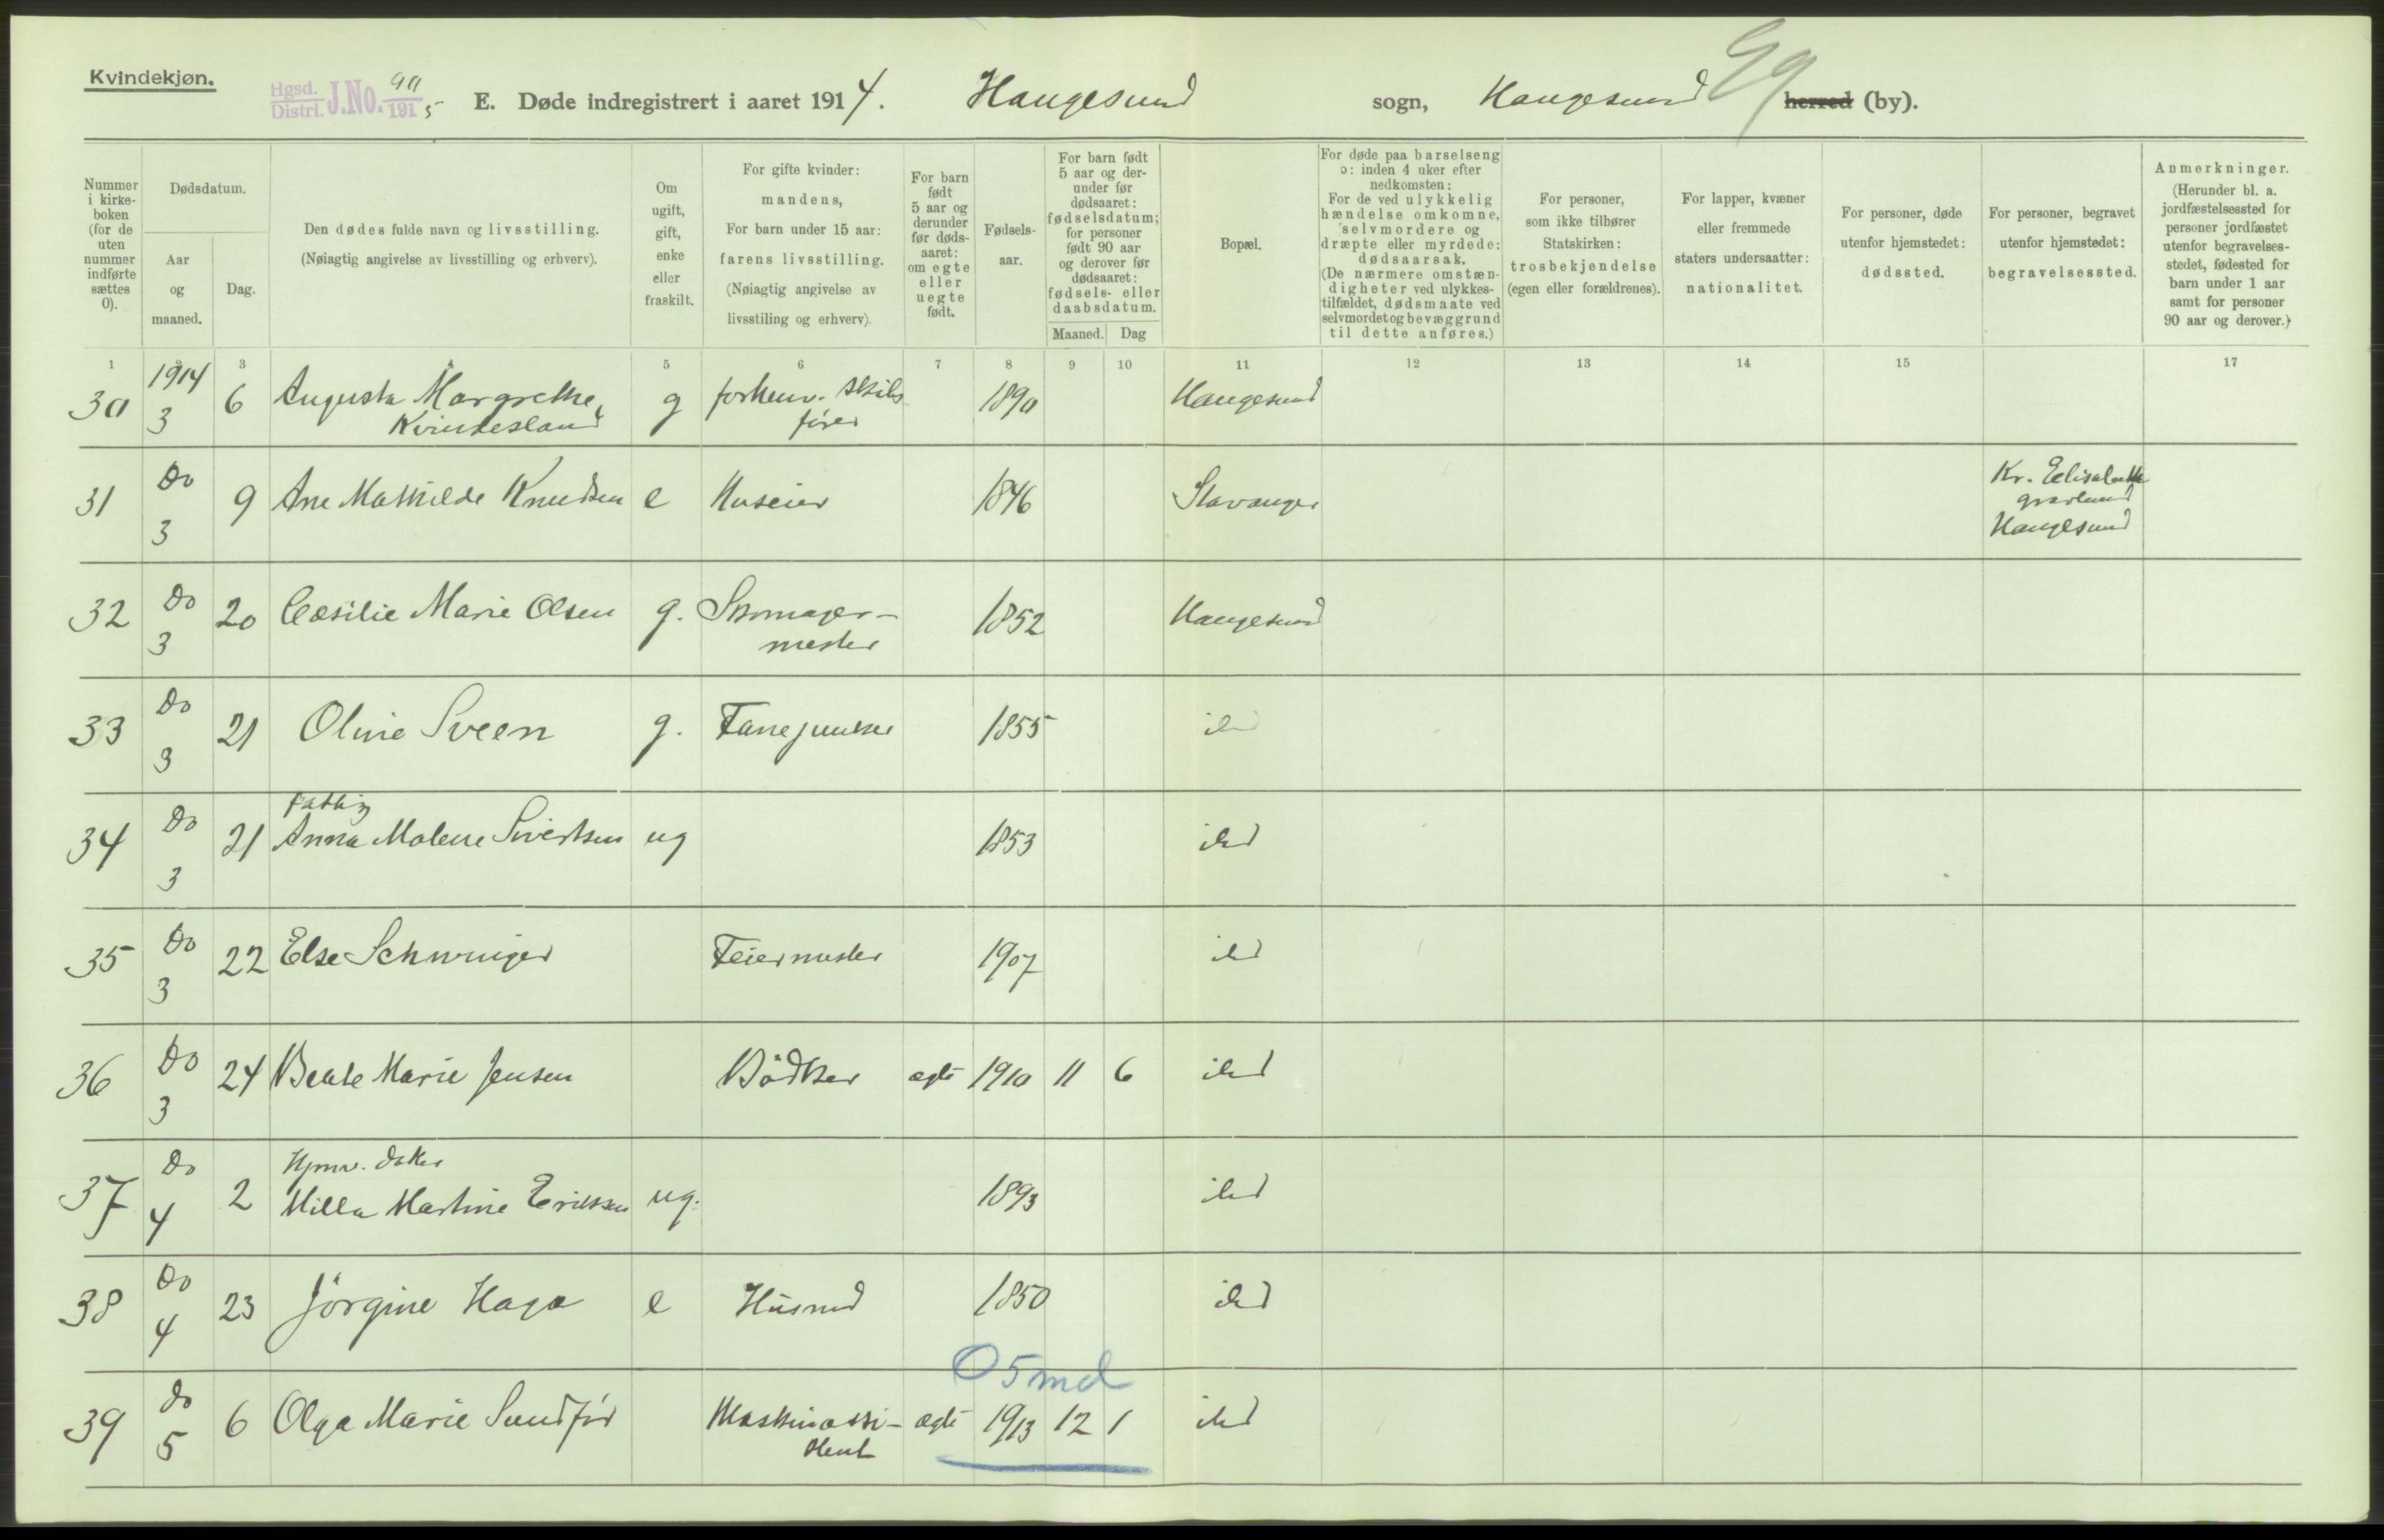 Kvindekjøn.
Hgsd. Distrl. J.No. 90/1915
E. Døde indregistrert i aaret 1914. Haugesund sogn, Haugesund herred (by).
Nummer i kirke-boken (for de uten nummer indførte sættes 0).
Dødsdatum.
Aar og maaned.
Dag.
Den dødes fulde navn og livsstilling.
(Nøiagtig angivelse av livsstilling og erhverv).
Om ugift, gift, enke eller fraskilt.
For gifte kvinder: mandens,
For barn under 15 aar: farens livsstilling.
(Nøiagtig angivelse av livsstiling og erhverv).
For barn født 5 aar og derunder før døds-aaret: om egte eller uegte født.
Fødsels-aar.
For barn født 5 aar og der-under før dødsaaret: fødselsdatum; for personer født 90 aar og derover før dødsaaret: fødsels- eller daabsdatum.
Maaned. Dag
Bopæl.
For døde paa barselseng ɔ: inden 4 uker efter nedkomsten:
For de ved ulykkelig hændelse omkomne, selvmordere og dræpte eller myrdede: dødsaarsak.
(De nærmere omstæn-digheter ved ulykkes-tilfældet, dødsmaate ved selvmordet og bevæggrund til dette anføres.)
For personer, som ikke tilhører Statskirken: trosbekjendelse (egen eller forældrenes).
For lapper, kvæner eller fremmede staters undersaatter: nationalitet.
For personer, døde utenfor hjemstedet: dødssted.
For personer, begravet utenfor hjemstedet: begravelsessted.
Anmerkninger.
(Herunder bl. a. jordfæstelsessted for personer jordfæstet utenfor begravelses-stedet, fødested for barn under 1 aar samt for personer 90 aar og derover.)
1 3 5 6 7 8 9 10 11 12 13 14 15 17
30 1914 3 6 Augusta Margrethe Kvindesland g forhenv. skibsfører 1890 Haugesund
31 Do 3 9 Ane Mathilde Knudsen e Huseier 1846 Stavanger Kr. Elisabeth gravlund Haugesund
32 Do 3 20 Cæsilie Marie Olsen g. Skomager-mester 1852 Haugesund
33 Do 3 21 Oline Sveen g. 1855 ibd
34 Do 3 21 Fattig Anna Malene Sivertsen ug 1853 ibd
35 Do 3 22 Else Schwinger Feiermester 1907 ibd
36 Do 3 24 Beate Marie Jensen Bødker ægte 1910 11 6 ibd
37 Do 4 2 Hjmv. datter Milla Martine Eriksen ug. 1893 ibd
38 Do 4 23 Jörgine Haga e Husmd 1850 ibd
O 5 md
39 do 5 6 Olga Marie Sundför Maskinassi-stent ægte 1913 12 1 ibd